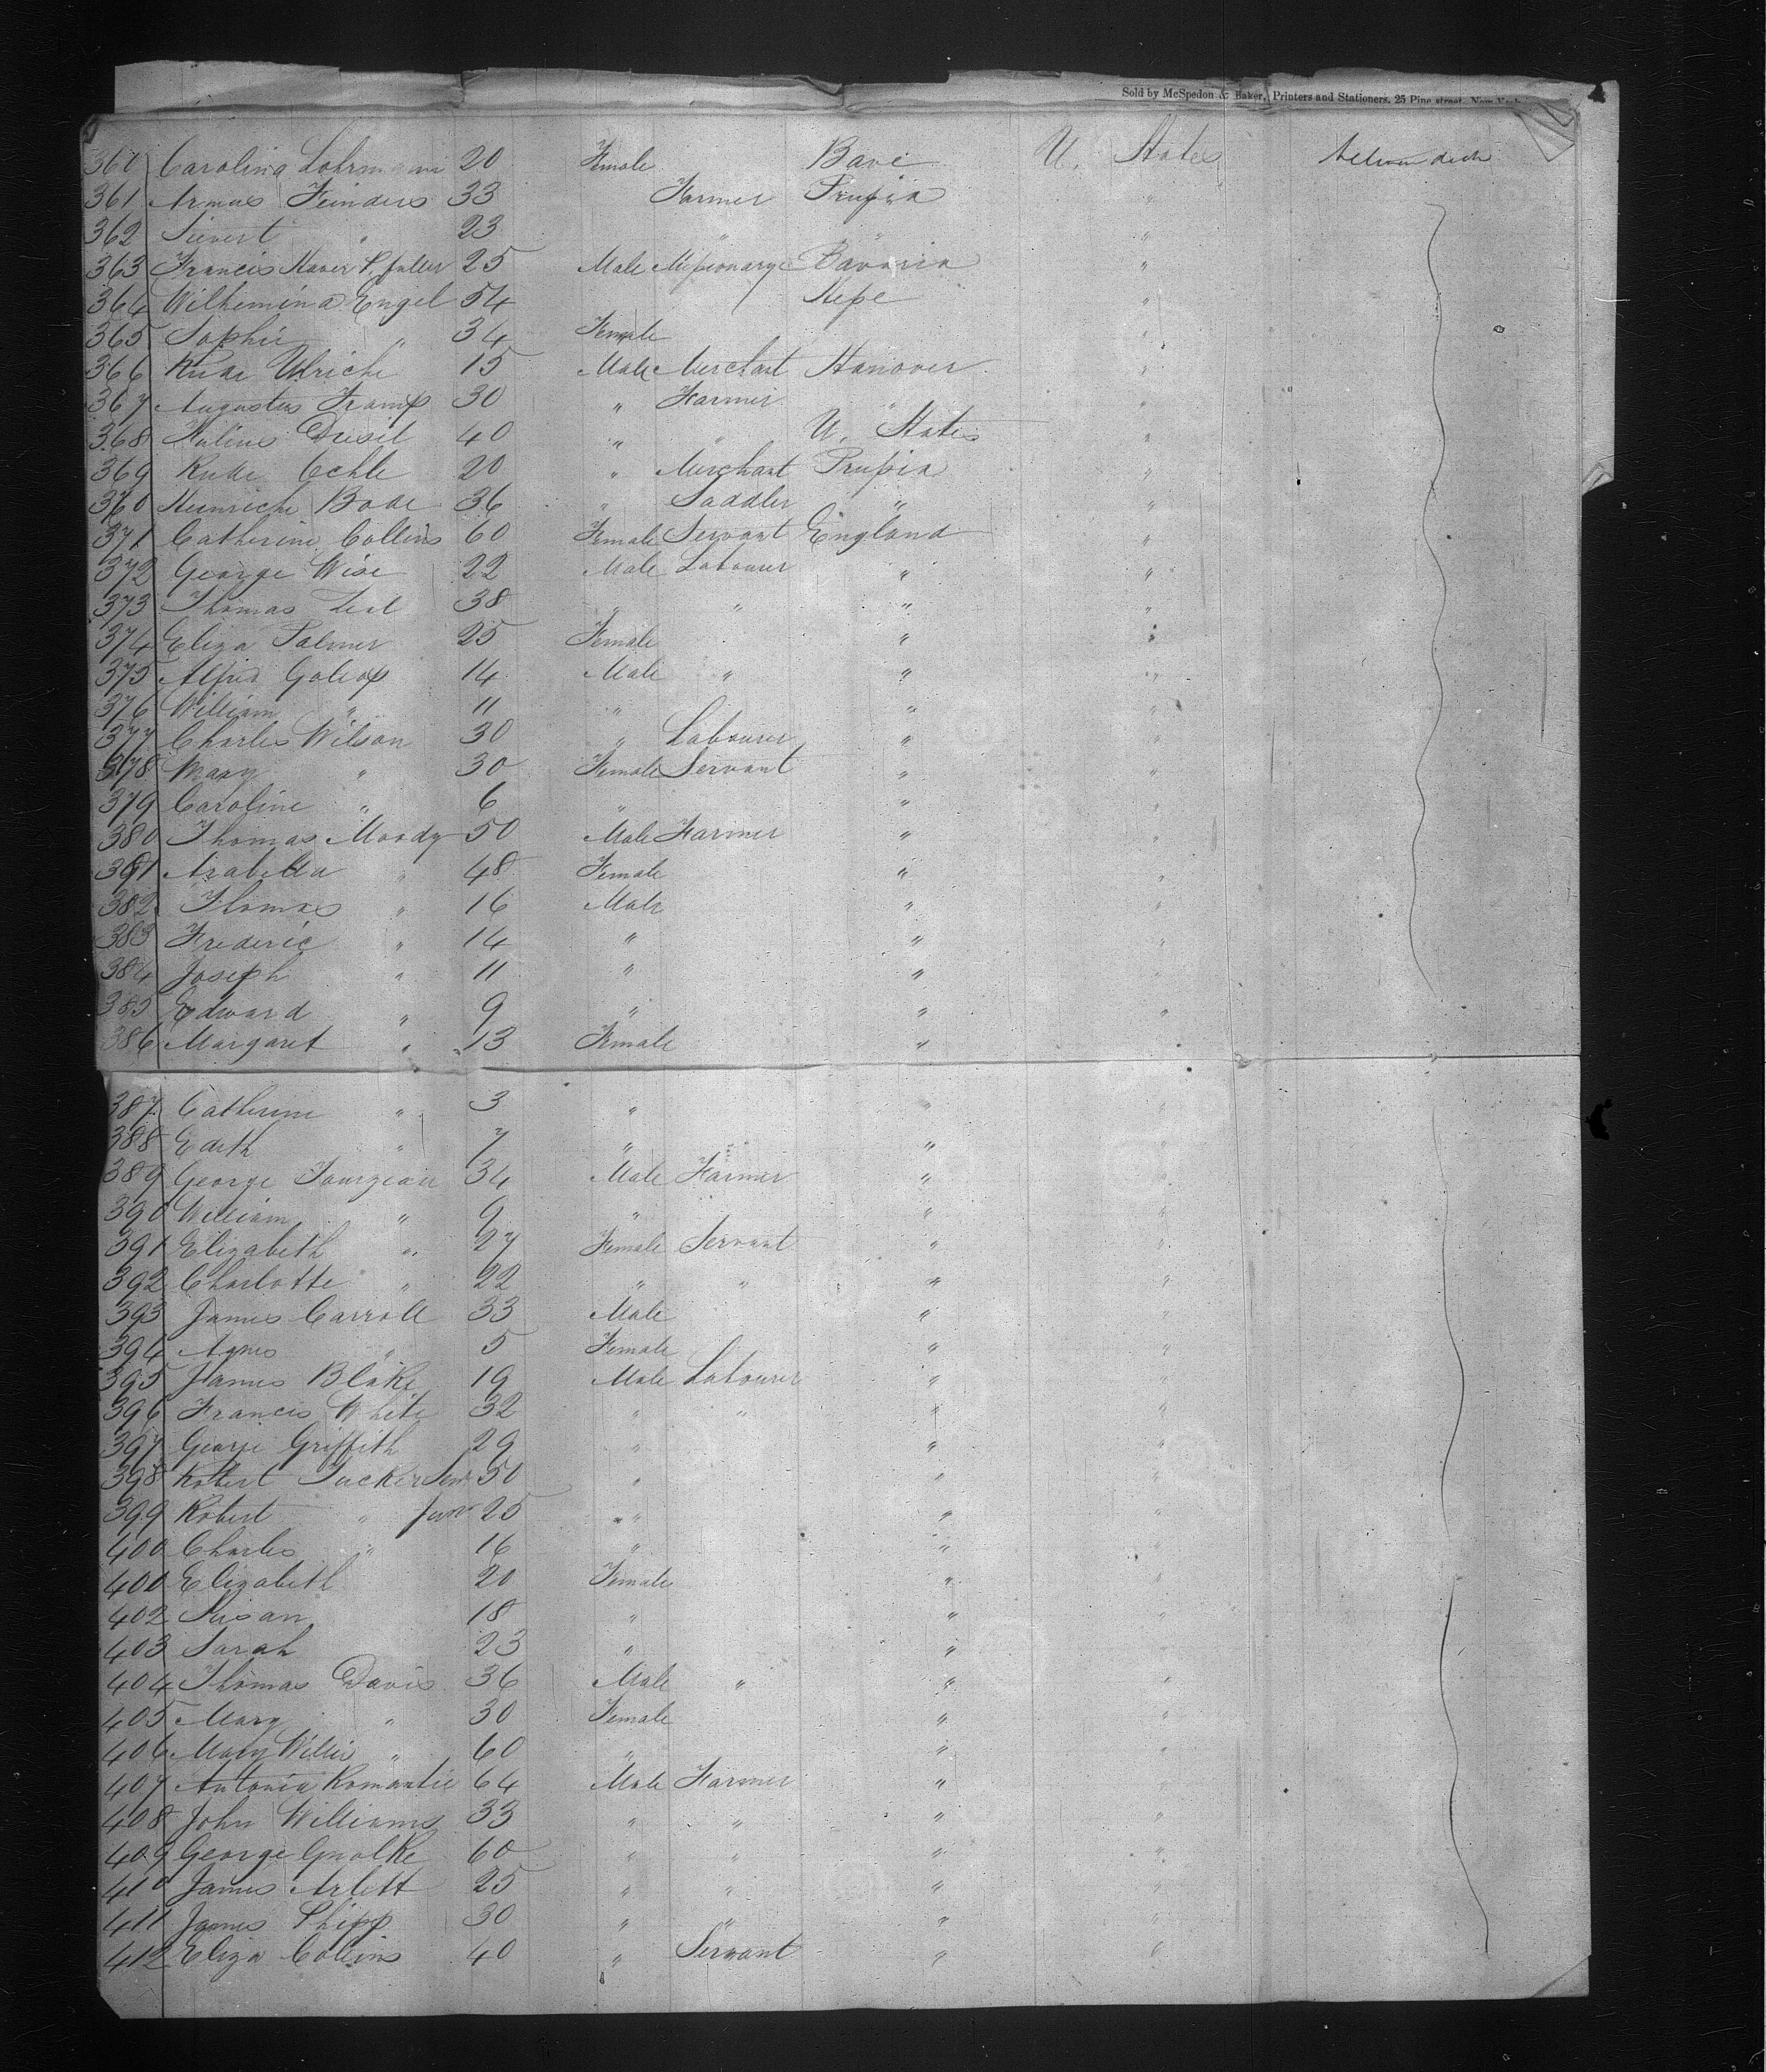 Sold by McSpedon & Baker, Printers and Stationers, 25 Pine street, New York
360 Carolina Lohrmann 20 Female Bavi U. States Between deck
361 Armus Feinders 33 Farmer Prussia "
362 Sievert " 23 " " "
363 Francis Xaver 25 Male Missionary Bavaria "
364 Wilhemina Engel 54 Hesse "
365 Sophie " 34 Female "
366 Ulrichi 15 Male Merchant Hanover "
367 Augustus Tramp 30 " Farmer " "
368 40 " " U. States "
369 20 " Merchant Prussia "
360 Heinrich Bode 36 " Saddler " "
371 Catherine Collins 60 Female Servant England "
372 George Wise 22 Male Labourer " "
373 Thomas 38 " " " "
374 Eliza Palmer 25 Female " "
375 Alfred 14 Male " " "
376 William " 11 " " "
377 Charles Wilson 30 " Labourer " "
378 Mary " 30 Female Servant " "
379 Caroline " 6 " " "
380 Thomas Moody 50 Male Farmer " "
381 Arabella " 48 Female " "
382 Thomas " 16 Male " "
383 Frederic " 14 " " "
384 Joseph " 11 " " "
385 Edward " 9 " " "
386 Margaret " 13 Female "
387 Catherine " 3 " " "
388 Edith " 7 " "
389 George 34 Male Farmer " "
390 William " 9 " " "
391 Elizabeth " 27 Female Servant " "
392 Charlotte " 22 " " " "
393 James Carroll 33 Male " "
394 Agnes " 5 Female " "
395 James Blake 19 Male Labourer " "
396 Francis White 32 " " " "
397 George Griffith 29 " " "
398 Robert Tucker Senr 50 " " "
399 Robert " Junr 25 " " "
400 Charles " 16 " " "
400 Elizabeth 20 Female " "
402 Susan 18 " " "
403 Sarah 23 " " "
404 Thomas Davis 36 Male " " "
405 Mary " 30 Female " "
406 Mary Willis " 60 " " "
407 Antonia Romantie 64 Male Farmer " "
408 John Williams 33 " " " "
409 George 60 " " " "
410 James Arlett 25 " " " "
411 James Phipp 30 " " " "
412 Eliza Collins 40 " Servant " "